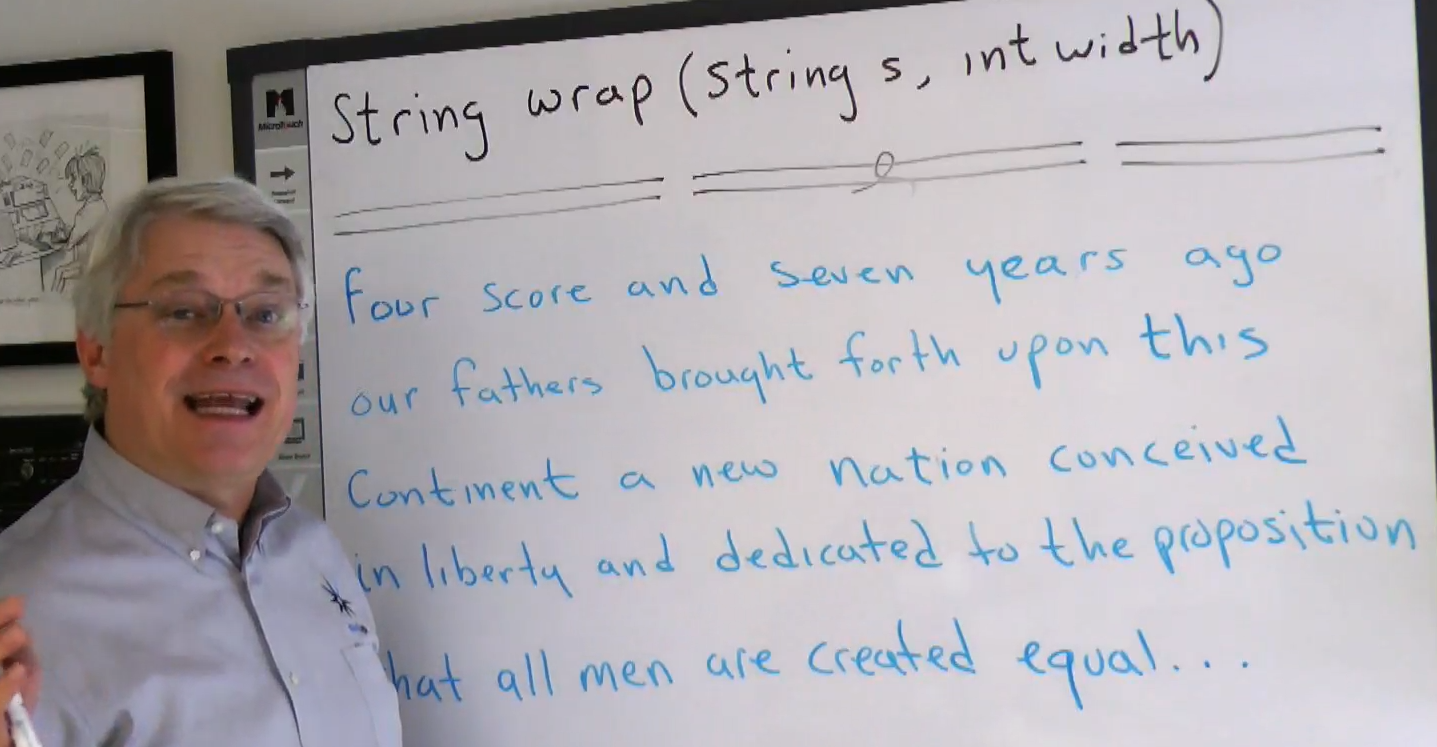 String wrap (String s, int width)
MicroTouch
Four score and seven years ago
our fathers brought forth upon this
Continent a new nation conceived
in liberty and dedicated to the proposition
hat all men are created equal...